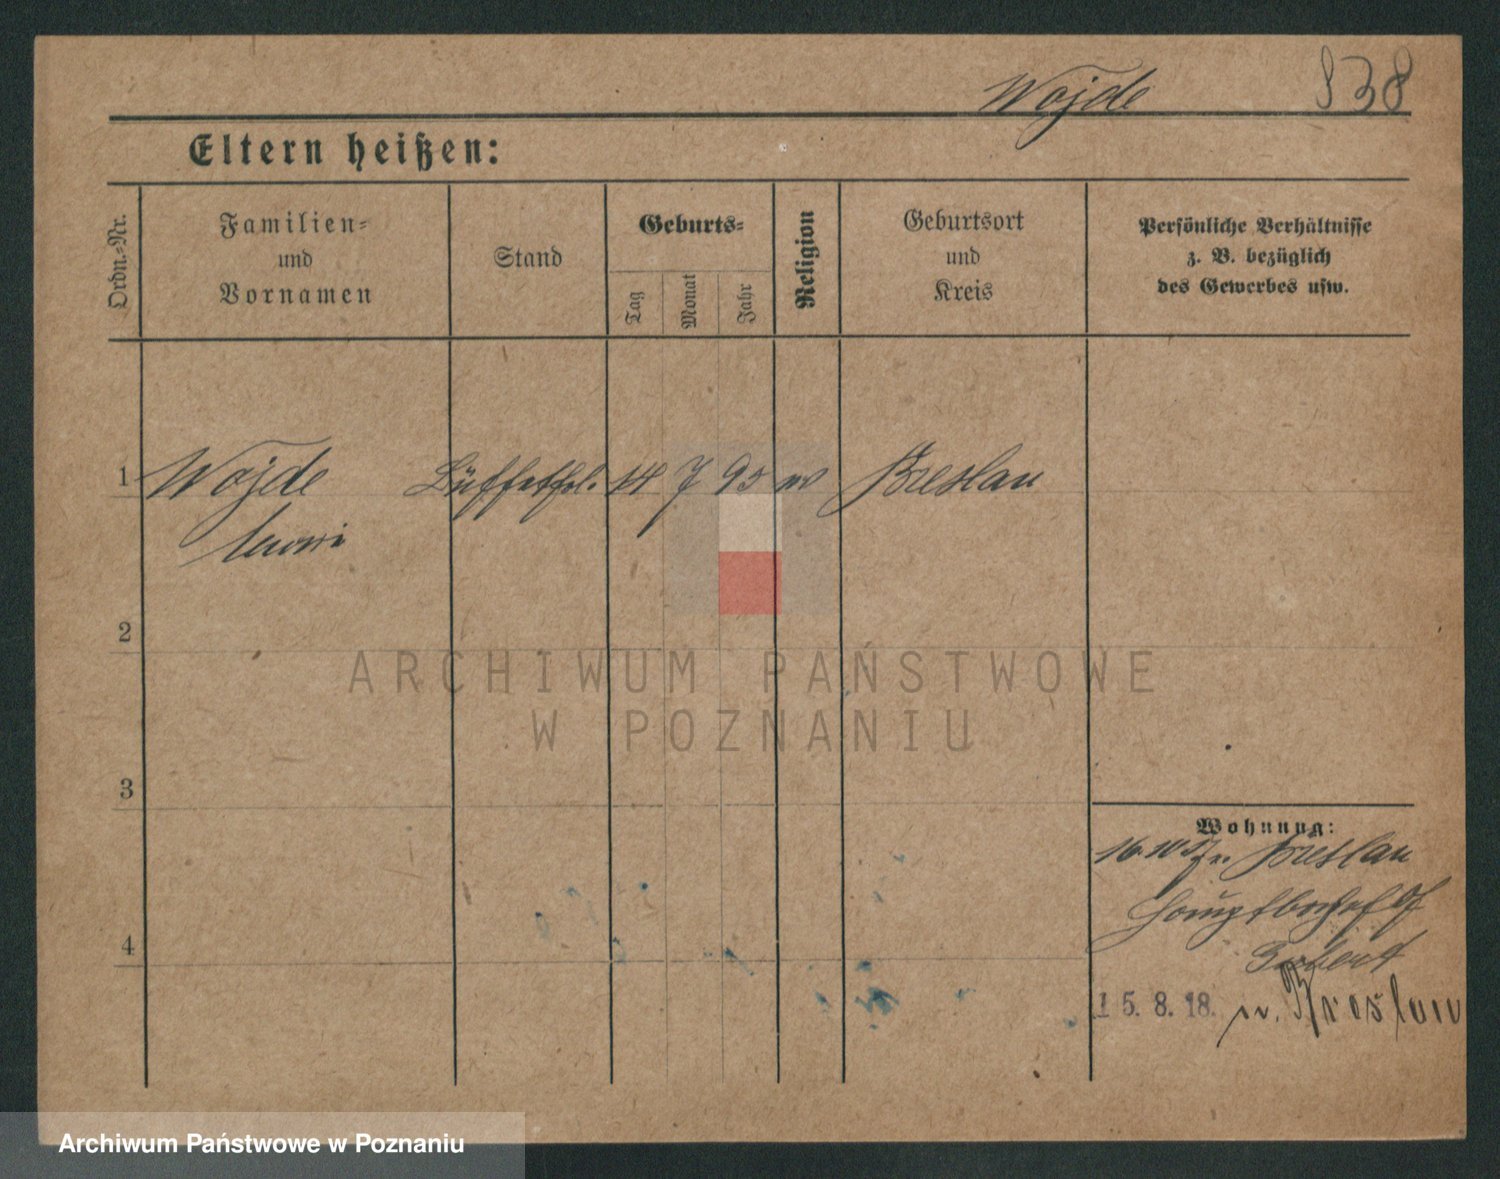 Wojde 838
Eltern heißen:
Ordn.-Nr.
Familien-
und
Vornamen
Stand
Geburts-
Tag
Monat
Jahr
Religion
Geburtsort
und
Kreis
Persönliche Verhältnisse
z. B. bezüglich
des Gewerbes usw.
1 Wojde Büffetfrl. 14 7 95 Breslau
2
3
4
Wohnung:
Breslau
Hauptbahnhof
15.8.18. n. Breslau
ARCHIWUM PAŃSTWOWE
W POZNANIU
Archiwum Państwowe w Poznaniu